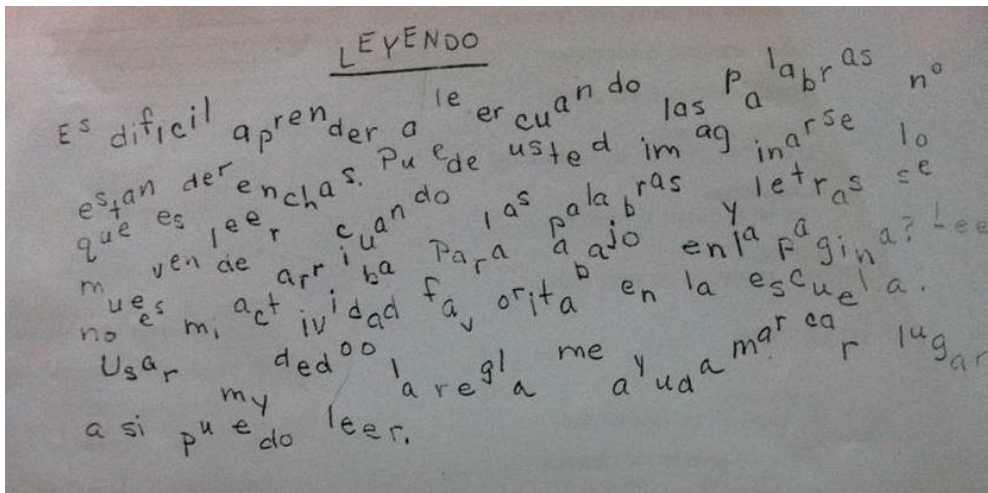 LEYENDO
Es dificil aprender a leer cuando las palabras no
estan derenchas. Puede usted imaginarse lo
que es leer cuando las palabras y letras se
mueven de arriba para abajo en la pagina? Lee
no es mi actividad favorita en la escuela.
Usar my dedo o la regla me ayuda marcar lugar
a si puedo leer.